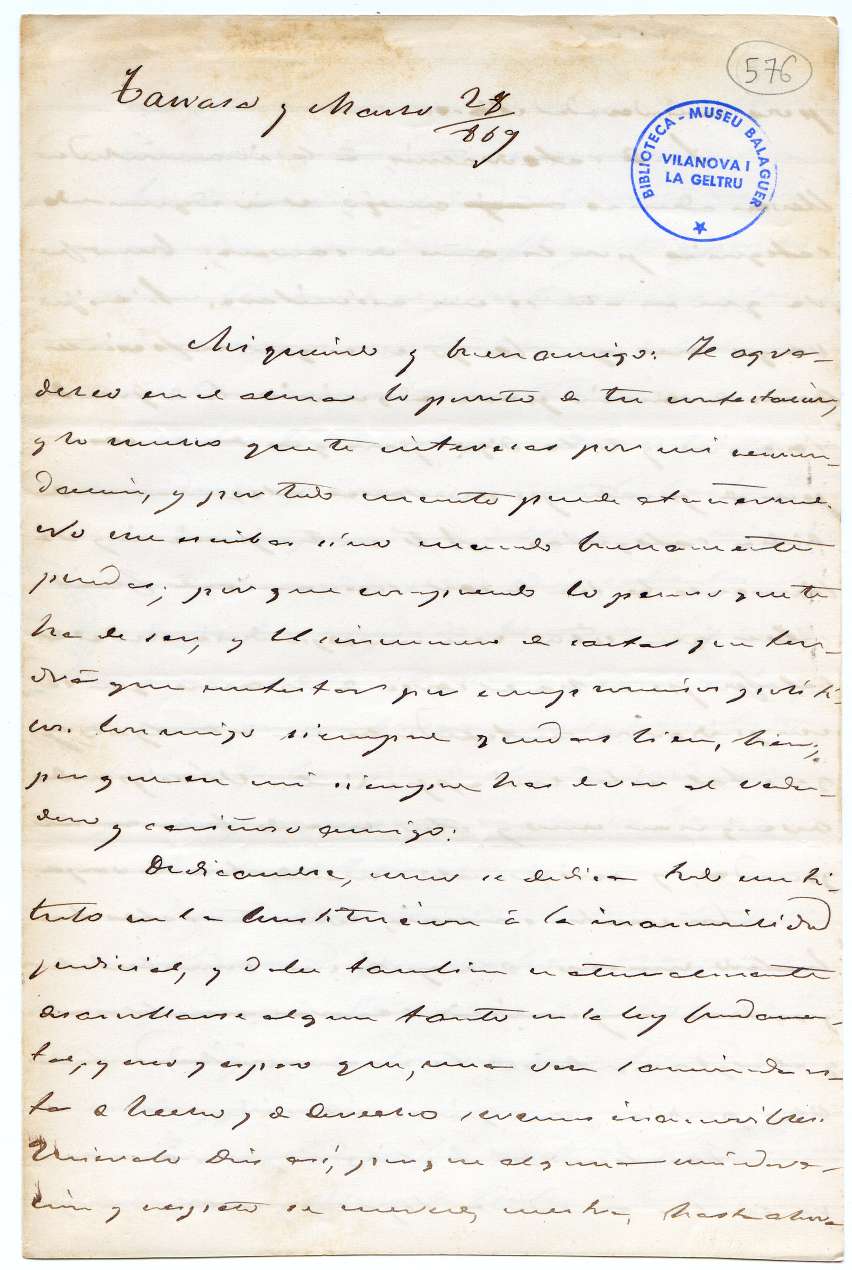 576
BIBLIOTECA - MUSEU BALAGUER
VILANOVA I
LA GELTRU
Tarrasa y Marzo 28/869
Mi querido y buen amigo: Te agra-
desco en el alma lo pronto de tu contestacion,
y lo mucho que te interesas por mi recomen-
dacion, y por todo cuanto puede atañerme.
No me escribas sino cuando buenamente
puedas; porque comprendo lo penoso que te
ha de ser, y el sin numero de cartas que ten-
drás que contestar por compromisos politi-
cos. Conmigo siempre quedas bien, bien,
porque en mi siempre has de ver al verda-
dero y cariñoso amigo.
Dedicandose, como se dedica todo un ti-
tulo en la Constitucion á la inamovilidad
judicial, y debe tambien naturalmente
desarrollarse algun tanto en la ley fundamen-
tal, y creo y espero que, una vez sancionada es-
ta de hecho y de derecho seremos inamovibles.
Quieralo Dios así, porque alguna considera-
cion y respeto se merece, nuestra, hasta ahora